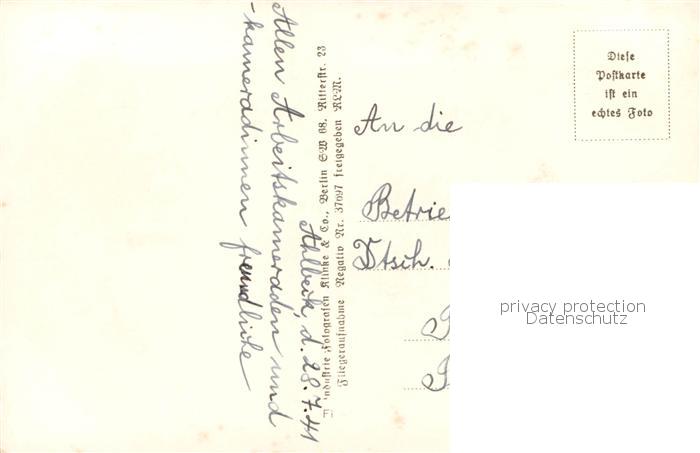 Ahlbeck, d. 28.7.41
Allen Arbeitskameraden und
-kameradinnen freundliche
Industrie-Fotografen Klinke & Co., Berlin SW 68, Ritterstr. 23
Fliegeraufnahme Negativ Nr. 37697 freigegeben RLM.
Fi
Diese
Postkarte
ist ein
echtes Foto
An die
Betrie
Dtsch.
privacy protection
Datenschutz